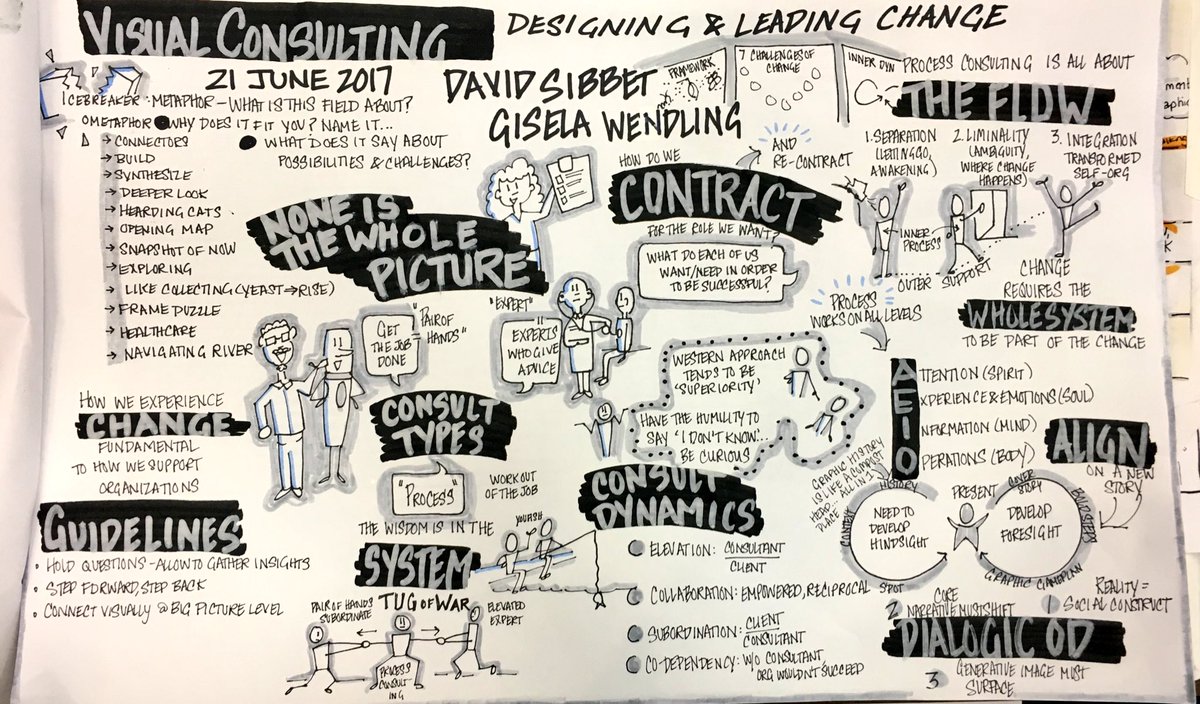 VISUAL CONSULTING
DESIGNING & LEADING CHANGE
21 JUNE 2017
DAVID SIBBET
GISELA WENDLING
FRAMEWORK
7 CHALLENGES OF
CHANGE
INNER DYN
ICEBREAKER: METAPHOR - WHAT IS THIS FIELD ABOUT?
METAPHOR ● WHY DOES IT FIT YOU? NAME IT...
● WHAT DOES IT SAY ABOUT
POSSIBILITIES & CHALLENGES?
→ CONNECTORS
→ BUILD
→ SYNTHESIZE
→ DEEPER LOOK
→ HEARDING CATS
→ OPENING MAP
→ SNAPSHOT OF NOW
→ EXPLORING
→ LIKE COLLECTING (YEAST → RISE)
→ FRAME PUZZLE
→ HEALTHCARE
→ NAVIGATING RIVER
NONE IS
THE WHOLE
PICTURE
HOW WE EXPERIENCE
CHANGE
FUNDAMENTAL
TO HOW WE SUPPORT
ORGANIZATIONS
GUIDELINES
• HOLD QUESTIONS - ALLOW TO GATHER INSIGHTS
• STEP FORWARD, STEP BACK
• CONNECT VISUALLY @ BIG PICTURE LEVEL
GET
THE JOB
DONE
=
"PAIR OF
HANDS"
"EXPERT"
=
EXPERTS
WHO GIVE
ADVICE
CONSULT
TYPES
"PROCESS"
WORK OUT
OF THE JOB
THE WISDOM IS IN THE
SYSTEM
YOU FISH
TUG OF WAR
PAIR OF HANDS
SUBORDINATE
ELEVATED
EXPERT
PROCESS
CONSULT
ING
HOW DO WE
CONTRACT
AND
RE-CONTRACT
FOR THE ROLE WE WANT?
WHAT DO EACH OF US
WANT/NEED IN ORDER
TO BE SUCCESSFUL?
WESTERN APPROACH
TENDS TO BE
'SUPERIORITY'
HAVE THE HUMILITY TO
SAY 'I DON'T KNOW'...
BE CURIOUS
CONSULT
DYNAMICS
ELEVATION: CONSULTANT
CLIENT
COLLABORATION: EMPOWERED, RECIPROCAL
SUBORDINATION: CLIENT
CONSULTANT
CO-DEPENDENCY: W/O CONSULTANT
ORG WOULDN'T SUCCEED
PROCESS CONSULTING IS ALL ABOUT
THE FLOW
1. SEPARATION
(LETTING GO,
AWAKENING)
2. LIMINALITY
(AMBIGUITY,
WHERE CHANGE
HAPPENS)
3. INTEGRATION
TRANSFORMED
SELF-ORG
INNER
PROCESS
OUTER SUPPORT
CHANGE
REQUIRES THE
WHOLE SYSTEM
TO BE PART OF THE CHANGE
PROCESS
WORKS ON ALL LEVELS
ATTENTION (SPIRIT)
EXPERIENCE & EMOTIONS (SOUL)
INFORMATION (MIND)
OPERATIONS (BODY)
ALIGN
ON A NEW
STORY
GRAPHIC HISTORY
IS LIKE A COMPOST
HEAP
ALL IN 1
PLACE
HISTORY
CONTENT
SPOT
NEED TO
DEVELOP
HINDSIGHT
PRESENT
COVER
STORY
BOLD STEPS
GRAPHIC GAMEPLAN
DEVELOP
FORESIGHT
2 CORE
NARRATIVE MUST SHIFT
1 REALITY =
SOCIAL CONSTRUCT
DIALOGIC OD
3 GENERATIVE IMAGE MUST
SURFACE